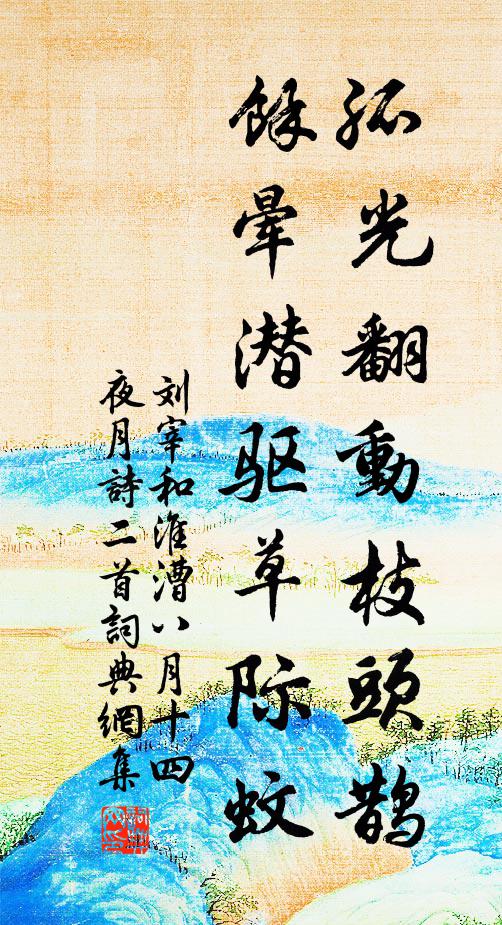 孤光翻動枝頭鹊
餘暈潜驱草际蚊
刘宰和淮漕八月十四
夜月詩二首詞典網集